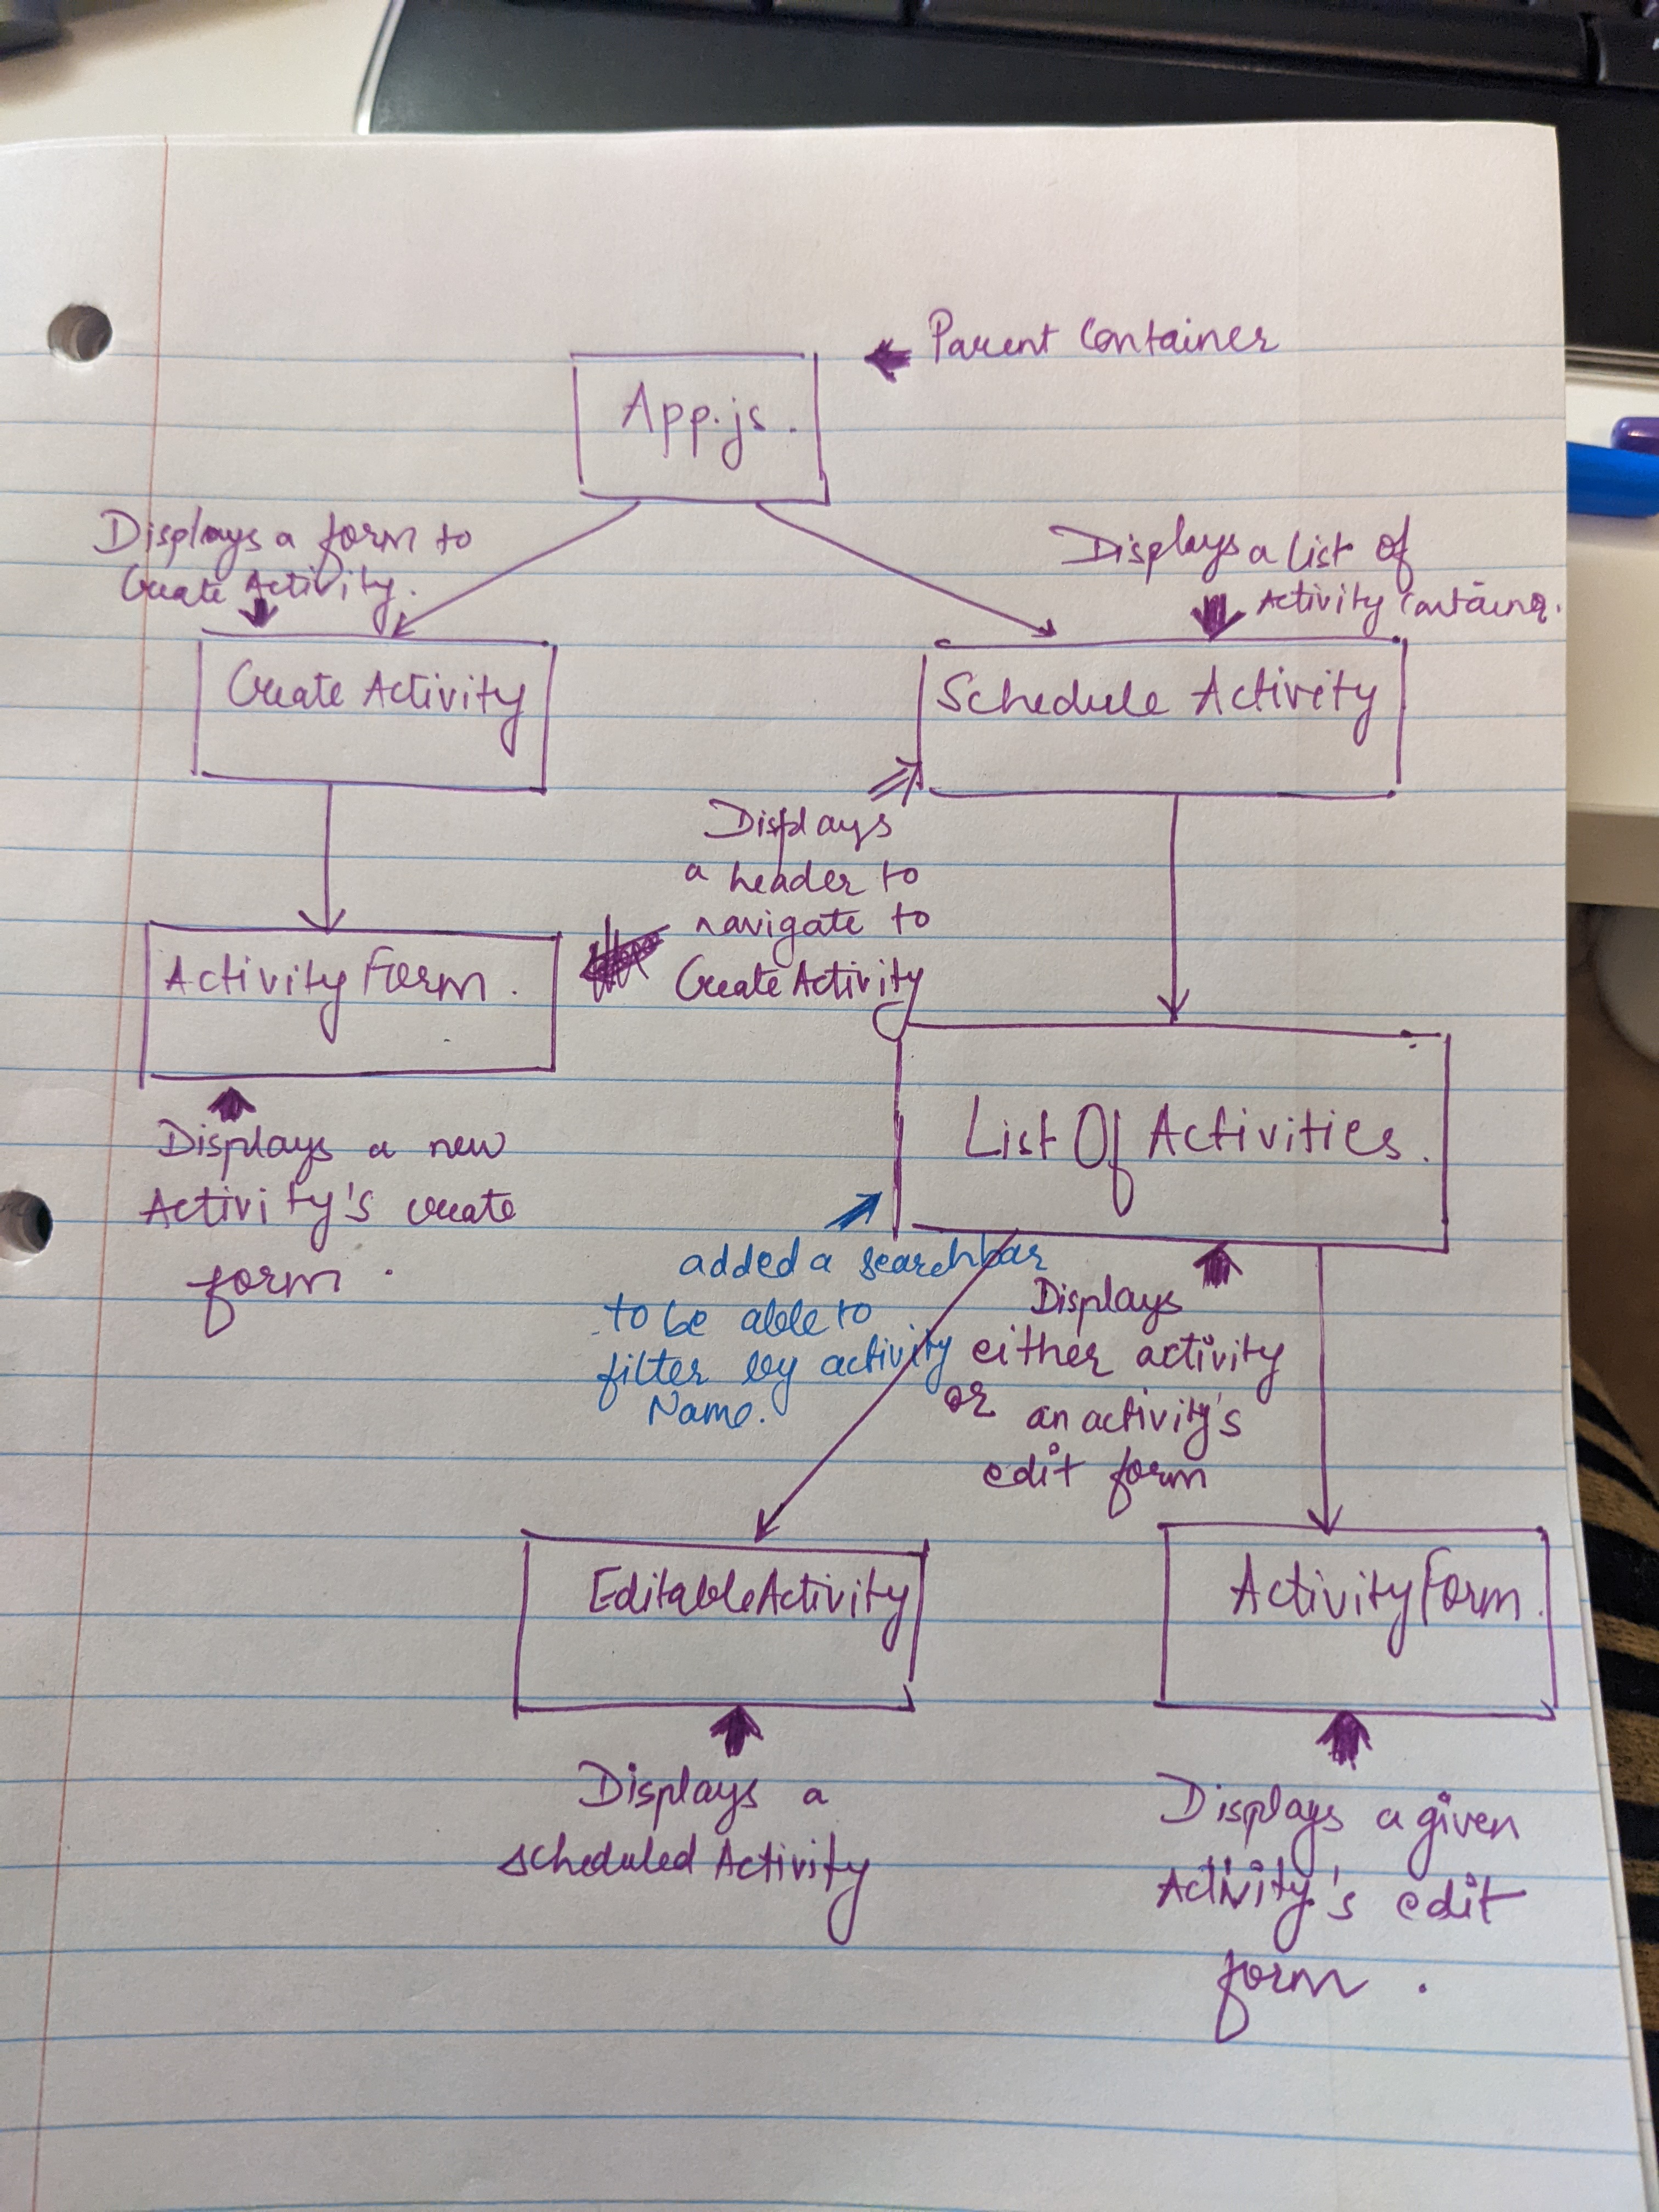 Parent Container
App.js.
Displays a form to
Create Activity.
Displays a list of
Activity container.
Create Activity
Schedule Activity
Displays
a header to
navigate to
Create Activity
Activity Form.
Displays a new
Activity's create
form.
List Of Activities.
added a search bar
to be able to
filter by activity
Name.
Displays
either activity
or an activity's
edit form
EditableActivity
ActivityForm.
Displays a
scheduled Activity
Displays a given
Activity's edit
form.